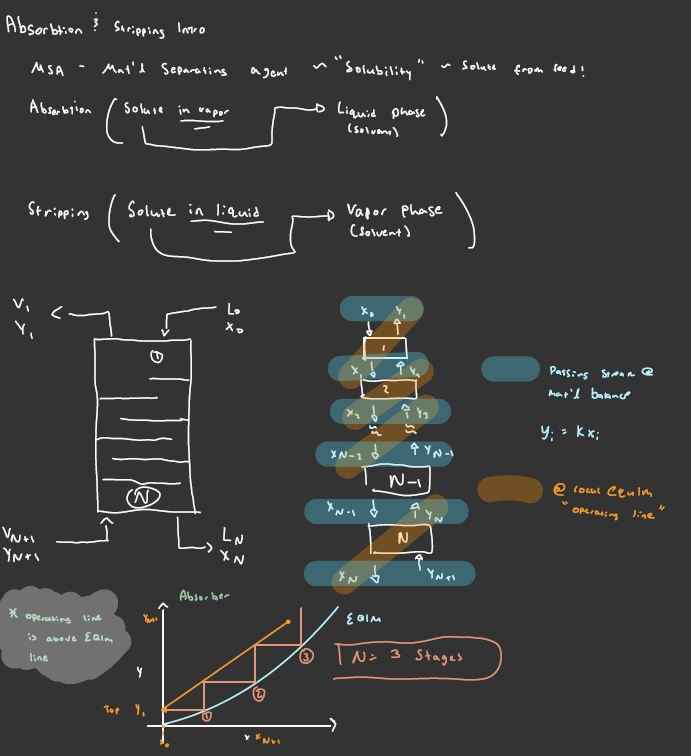 Absorbtion & Stripping Intro
MSA - Mat'l Separating agent ~ "Solubility" ~ Solute from feed!
Absorbtion (Solute in vapor → Liquid phase)
(solvent)
Stripping (Solute in liquid → Vapor phase)
(Solvent)
V₁
Y₁
L₀
X₀
①
N
V_N+1
Y_N+1
L_N
X_N
X₀ Y₁
1
X₁ Y₂
2
X₂ Y₃
X_N-2 Y_N-1
N-1
X_N-1 Y_N
N
X_N Y_N+1
Passing stream @
mat'l balance
yᵢ = Kxᵢ
@ local Equlm
"operating line"
* operating line
is above EQlm
line
Absorber
Y_N+1
Y
Top Y₁
X₀
X X_N+1
EQlm
①
②
③
N= 3 Stages